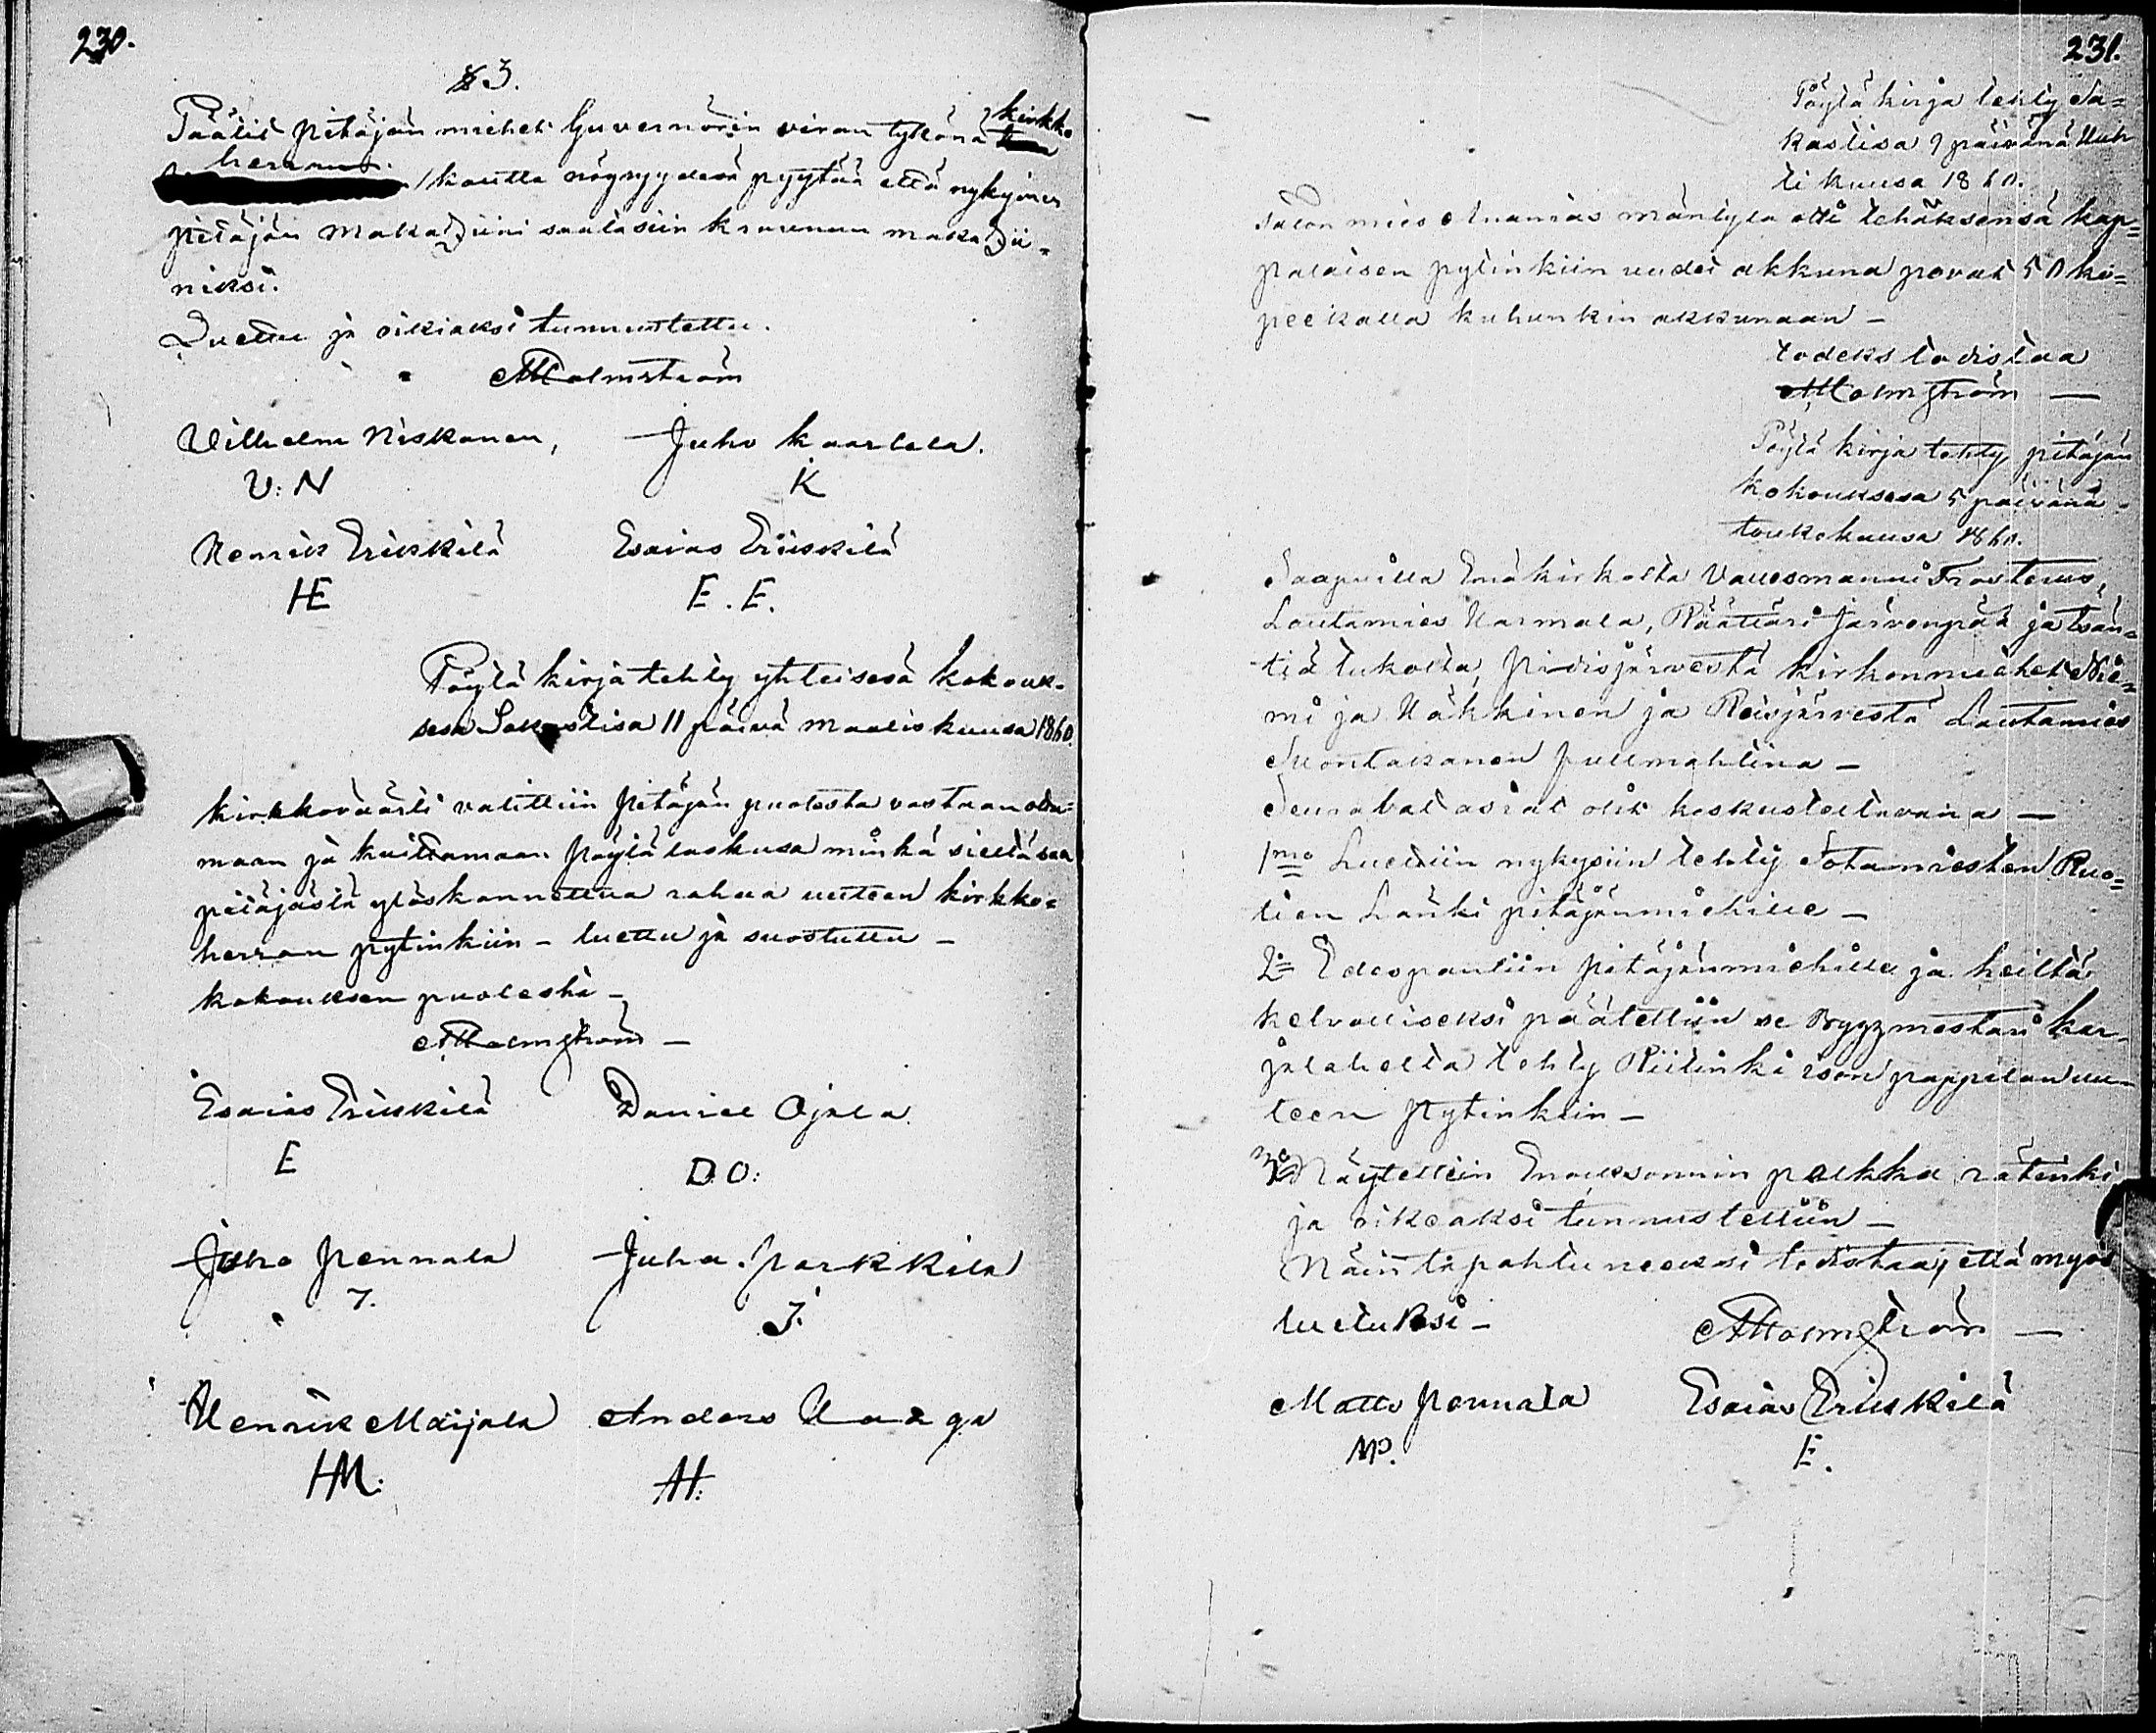 230.
§ 3.
Päätit pitäjän miehet Guvernörin viran tykönä kirkko
herran kautta nöyryydesä pyytää että nykyinen
pitäjän makasiini saatasiin kruunun makasii-
niksi.
Luettu ja oikiaksi tunnustettu.
A Holmström
Vilhelm Niskanen, Juho kaarlela.
V: N K
Henrik Eriskilä Esaias Eriskilä
HE E. E.
Pöytä kirja tehty yhteisesä kokouk-
sesa Sakastisa 11 päivä maaliskuusa 1860.
kirkkoväärti valittiin pitäjän puolesta vastaan otta-
maan ja kuittamaan pöytä laskusa minkä sieltä saa
pitäjästä ylöskannettua rahaa uuteen kirkko-
herran pytinkiin - luettu ja suostuttu -
kokouksen puolesta -
A Holmström -
Esaias Eriskilä Daniel Ojala.
E D.O:
Juho pennala Juha. parkkila
7. J.
Henrik Maijala Anders Haaga
HM: AH:
231.
Pöytä kirja tehty Sa-
kastisa 9 päivänä Huh
ti kuusa 1860.
Talon mies Ananias mäntyla otti tehäksensä kap-
palaisen pytinkiin uudet akkuna povat 50 ko-
peekalla kuhunkin akkunaan -
todeks todistaa
A Holmström -
Pöytä kirja tehty pitäjän
kokouksesa 5 päivänä
toukokuusa 1860.
Saapuilla Emäkirkolta Vallesmanni Frosterus,
Lautamies Harmala, Räättäri Järvenpää ja Isän-
tiä lukolta, pidisjärvestä kirkonmiehet Nie-
mi ja Häkkinen ja Reisjärvestä Lautamies
Suontakanen fullmahtina -
Seuravat asiat olit keskusteltavana -
1mo Luettiin nykysiin tehty Sotamiesten Ruo-
tien Länki pitäjänmiehille -
2o Edespantiin pitäjänmiehille ja heiltä
kelvolliseksi päätettiin se Byggmestari kar-
jalahelta tehty Riitinki ison pappilan uu-
teen pytinkiin -
3o Näytettiin palkka rätinki
ja oikeaksi tunnustettiin -
Näin tapahtuneeksi todistaa, että myös
luetuksi - A Holmström -
Matts pennala Esaias Eriskilä
MP. E.